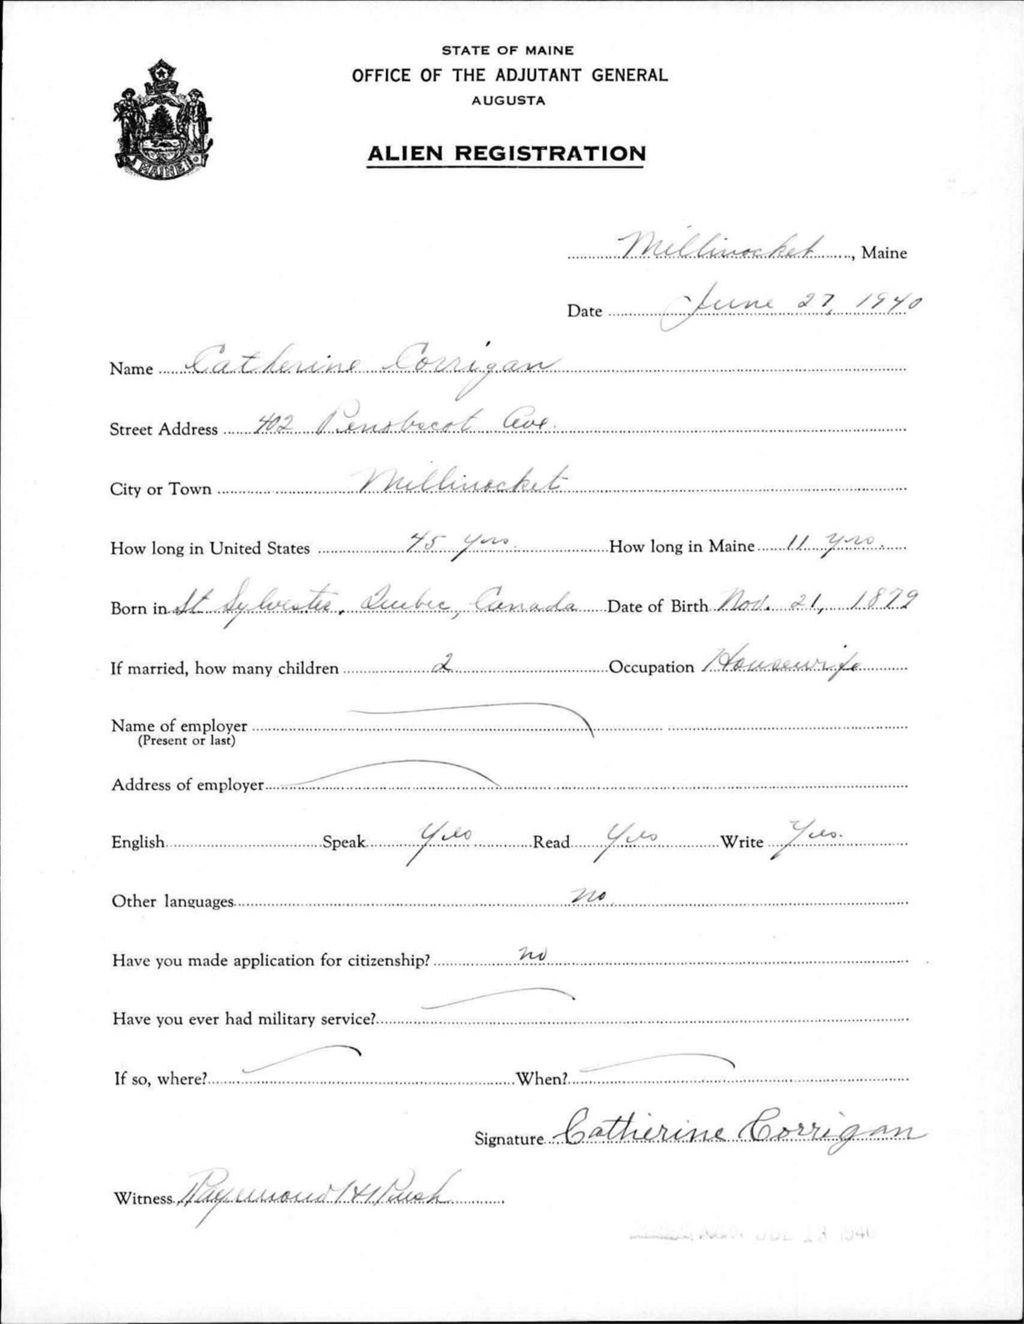 STATE OF MAINE
OFFICE OF THE ADJUTANT GENERAL
AUGUSTA
ALIEN REGISTRATION
MAINE
Millinocket, Maine
Date June 27, 1940
Name Catherine Corrigan
Street Address 402 Penobscot Ave.
City or Town Millinocket
How long in United States 45 yrs. How long in Maine 11 yrs.
Born in St Sylvester, Quebec, Canada Date of Birth Nov. 21, 1879
If married, how many children 2 Occupation Housewife
Name of employer
(Present or last)
Address of employer
English Speak Yes Read Yes Write Yes.
Other languages no
Have you made application for citizenship? no
Have you ever had military service?
If so, where? When?
Signature Catherine Corrigan
Witness Raymond H Rush